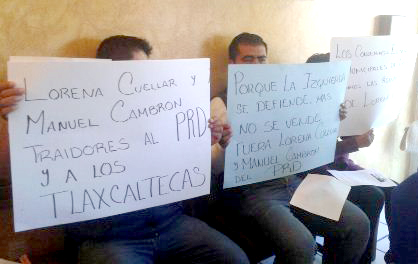 LORENA CUELLAR Y
MANUEL CAMBRON
TRAIDORES AL PRD
Y A LOS
TLAXCALTECAS
PORQUE LA IZQUIERDA
SE DEFIENDE, MAS
NO SE VENDE,
FUERA LORENA CUELLAR
Y MANUEL CAMBRON
DEL PRD
LOS
DE LOREN